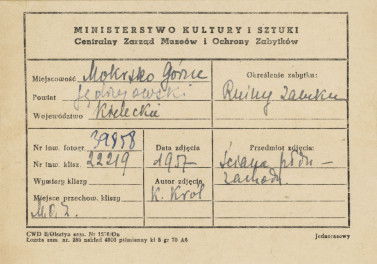 MINISTERSTWO KULTURY i SZTUKI
Centralny Zarząd Muzeów i Ochrony Zabytków
Miejscowość Mokrsko Górne
Powiat Jędrzejowski
Województwo Kieleckie
Określenie zabytku:
Ruiny zamku
Nr inw. fotogr. 39858
Nr inw. klisz. 22219
Wymiary kliszy
Miejsce przechow. kliszy
Data zdjęcia
1957
Autor zdjęcia
K. Król
Przedmiot zdjęcia:
Ściana płdn-
zachodn.
CWD Jednorazowy